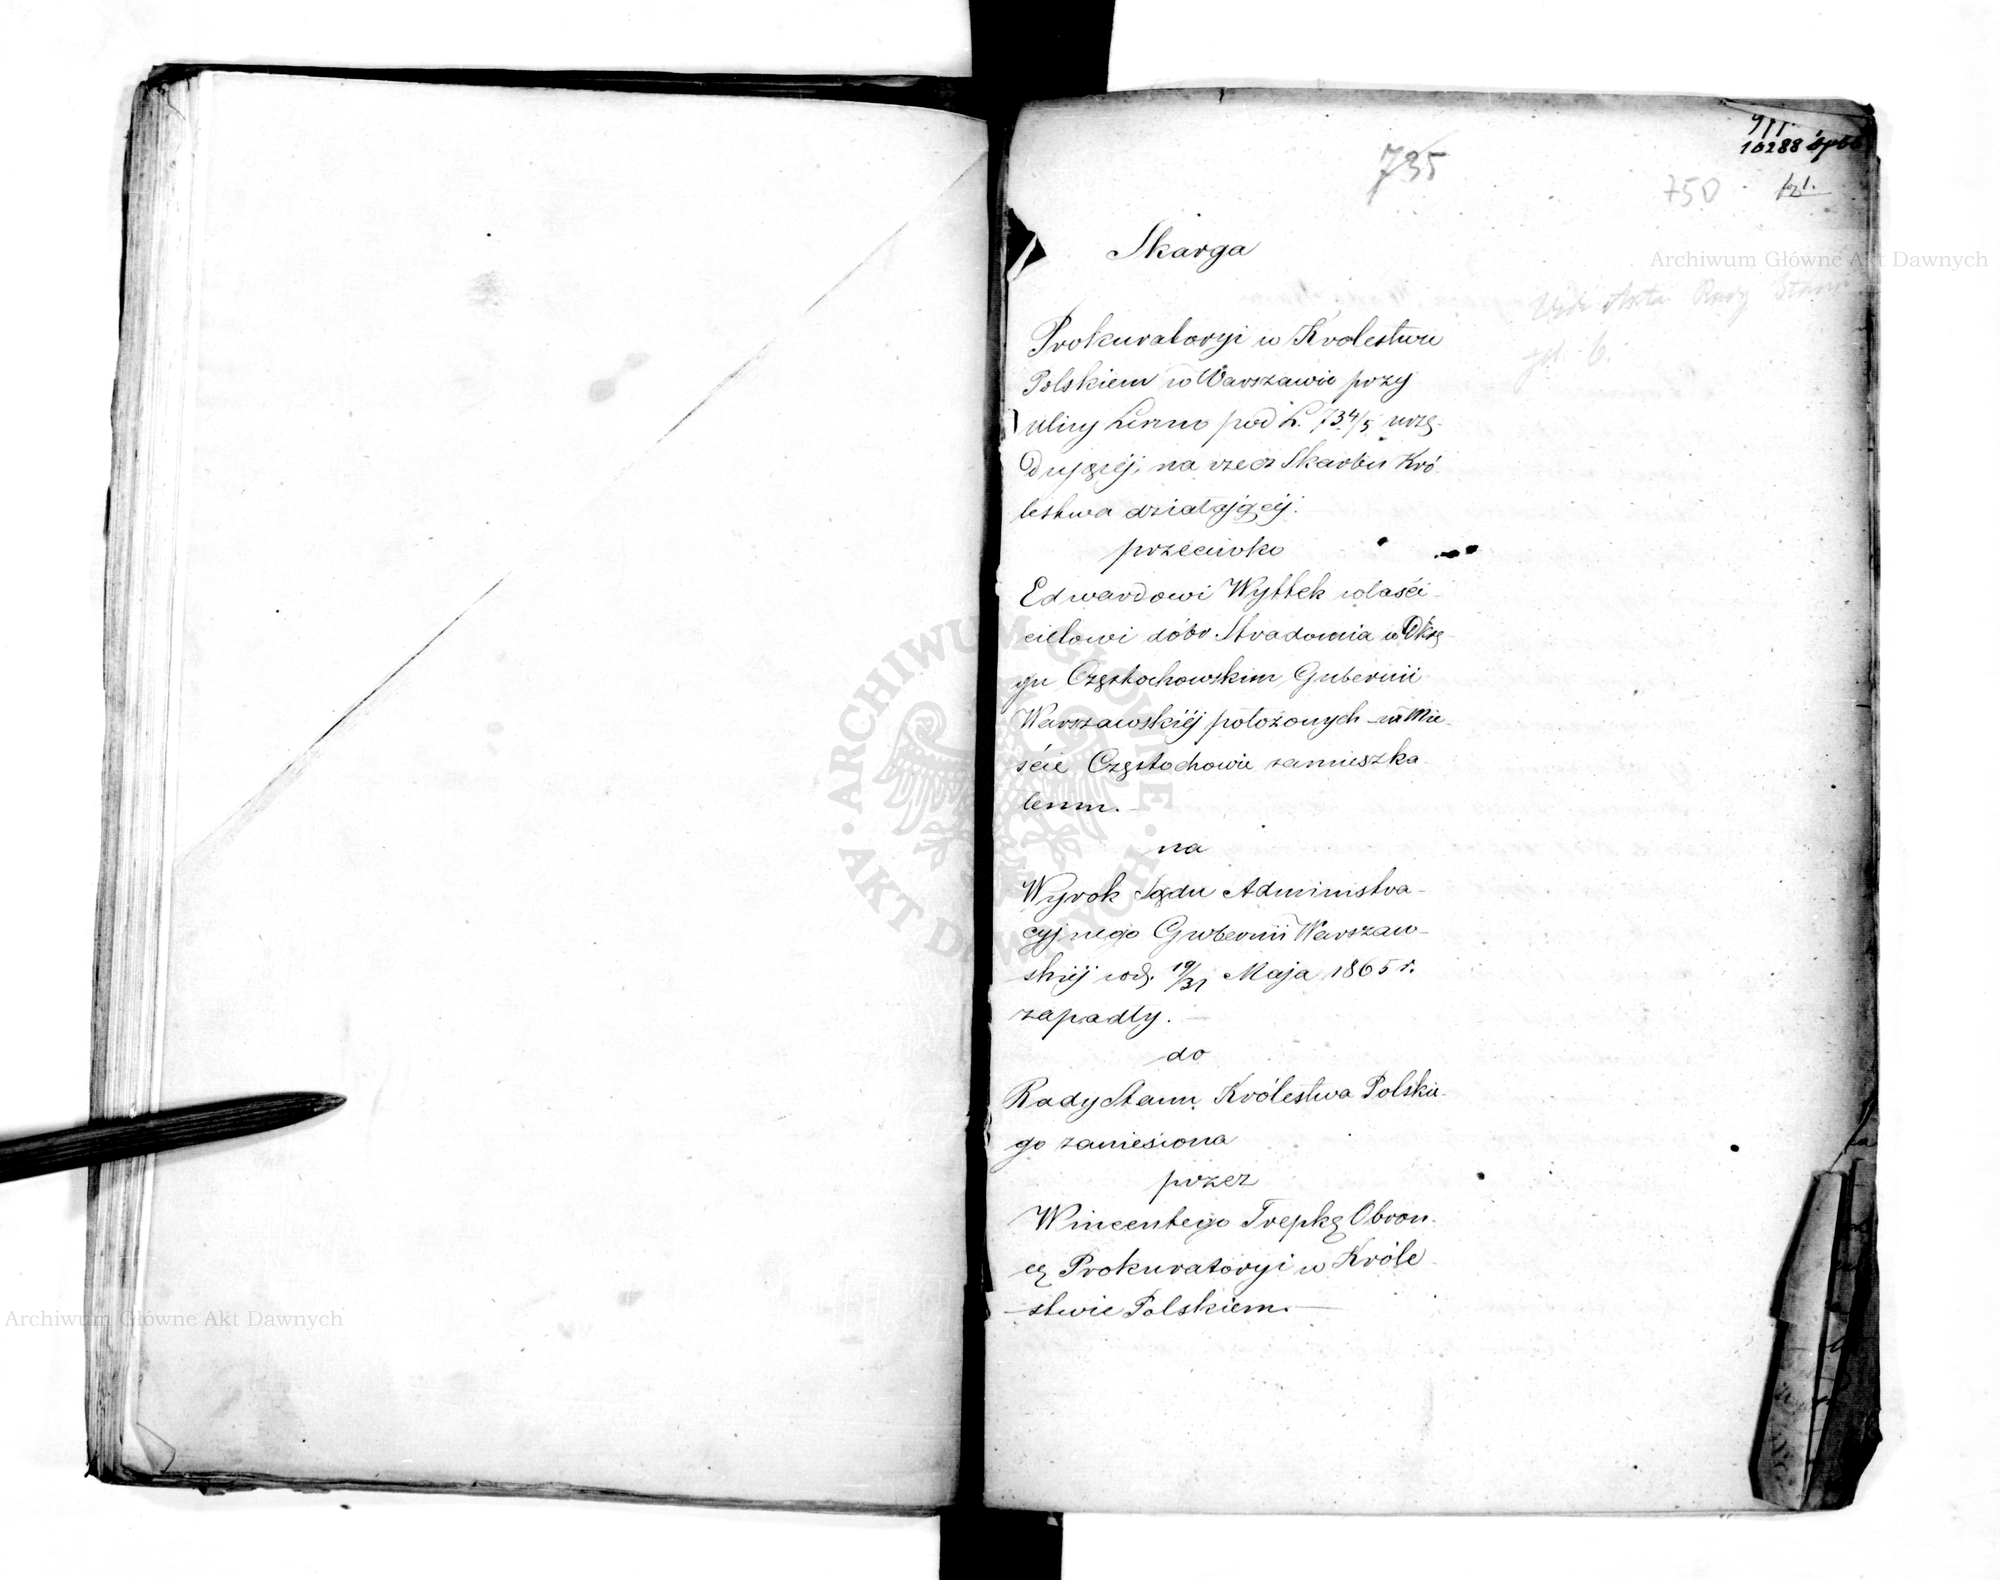 735
10288
750
Skarga
Prokuratoryi w Krolestwie
Polskiem w Warszawie przy
ulicy Leszno pod L. 734/5 urzę-
dującej, na rzecz Skarbu Kró-
lestwa działającej.
przeciwko
Edwardowi Wyttek właści-
cielowi dóbr Stradomia w Okrę-
gu Częstochowskim Gubernii
Warszawskiéj położonych w Mie-
ście Częstochowie zamieszka-
łemu.
na
Wyrok Sądu Administra-
cyjnego Gubernii Warszaw-
skiéj w d. 19/31 Maja 1865 r.
zapadły.
do
Rady Stanu Królestwa Polskie-
go zaniesiona
przez
Wincentego Trepkę Obroń-
cę Prokuratoryi w Króle-
stwie Polskiem.
Akta Rady Stanu
6.
Archiwum Główne Akt Dawnych
ARCHIWUM GŁÓWNE
AKT DAWNYCH
Archiwum Główne Akt Dawnych